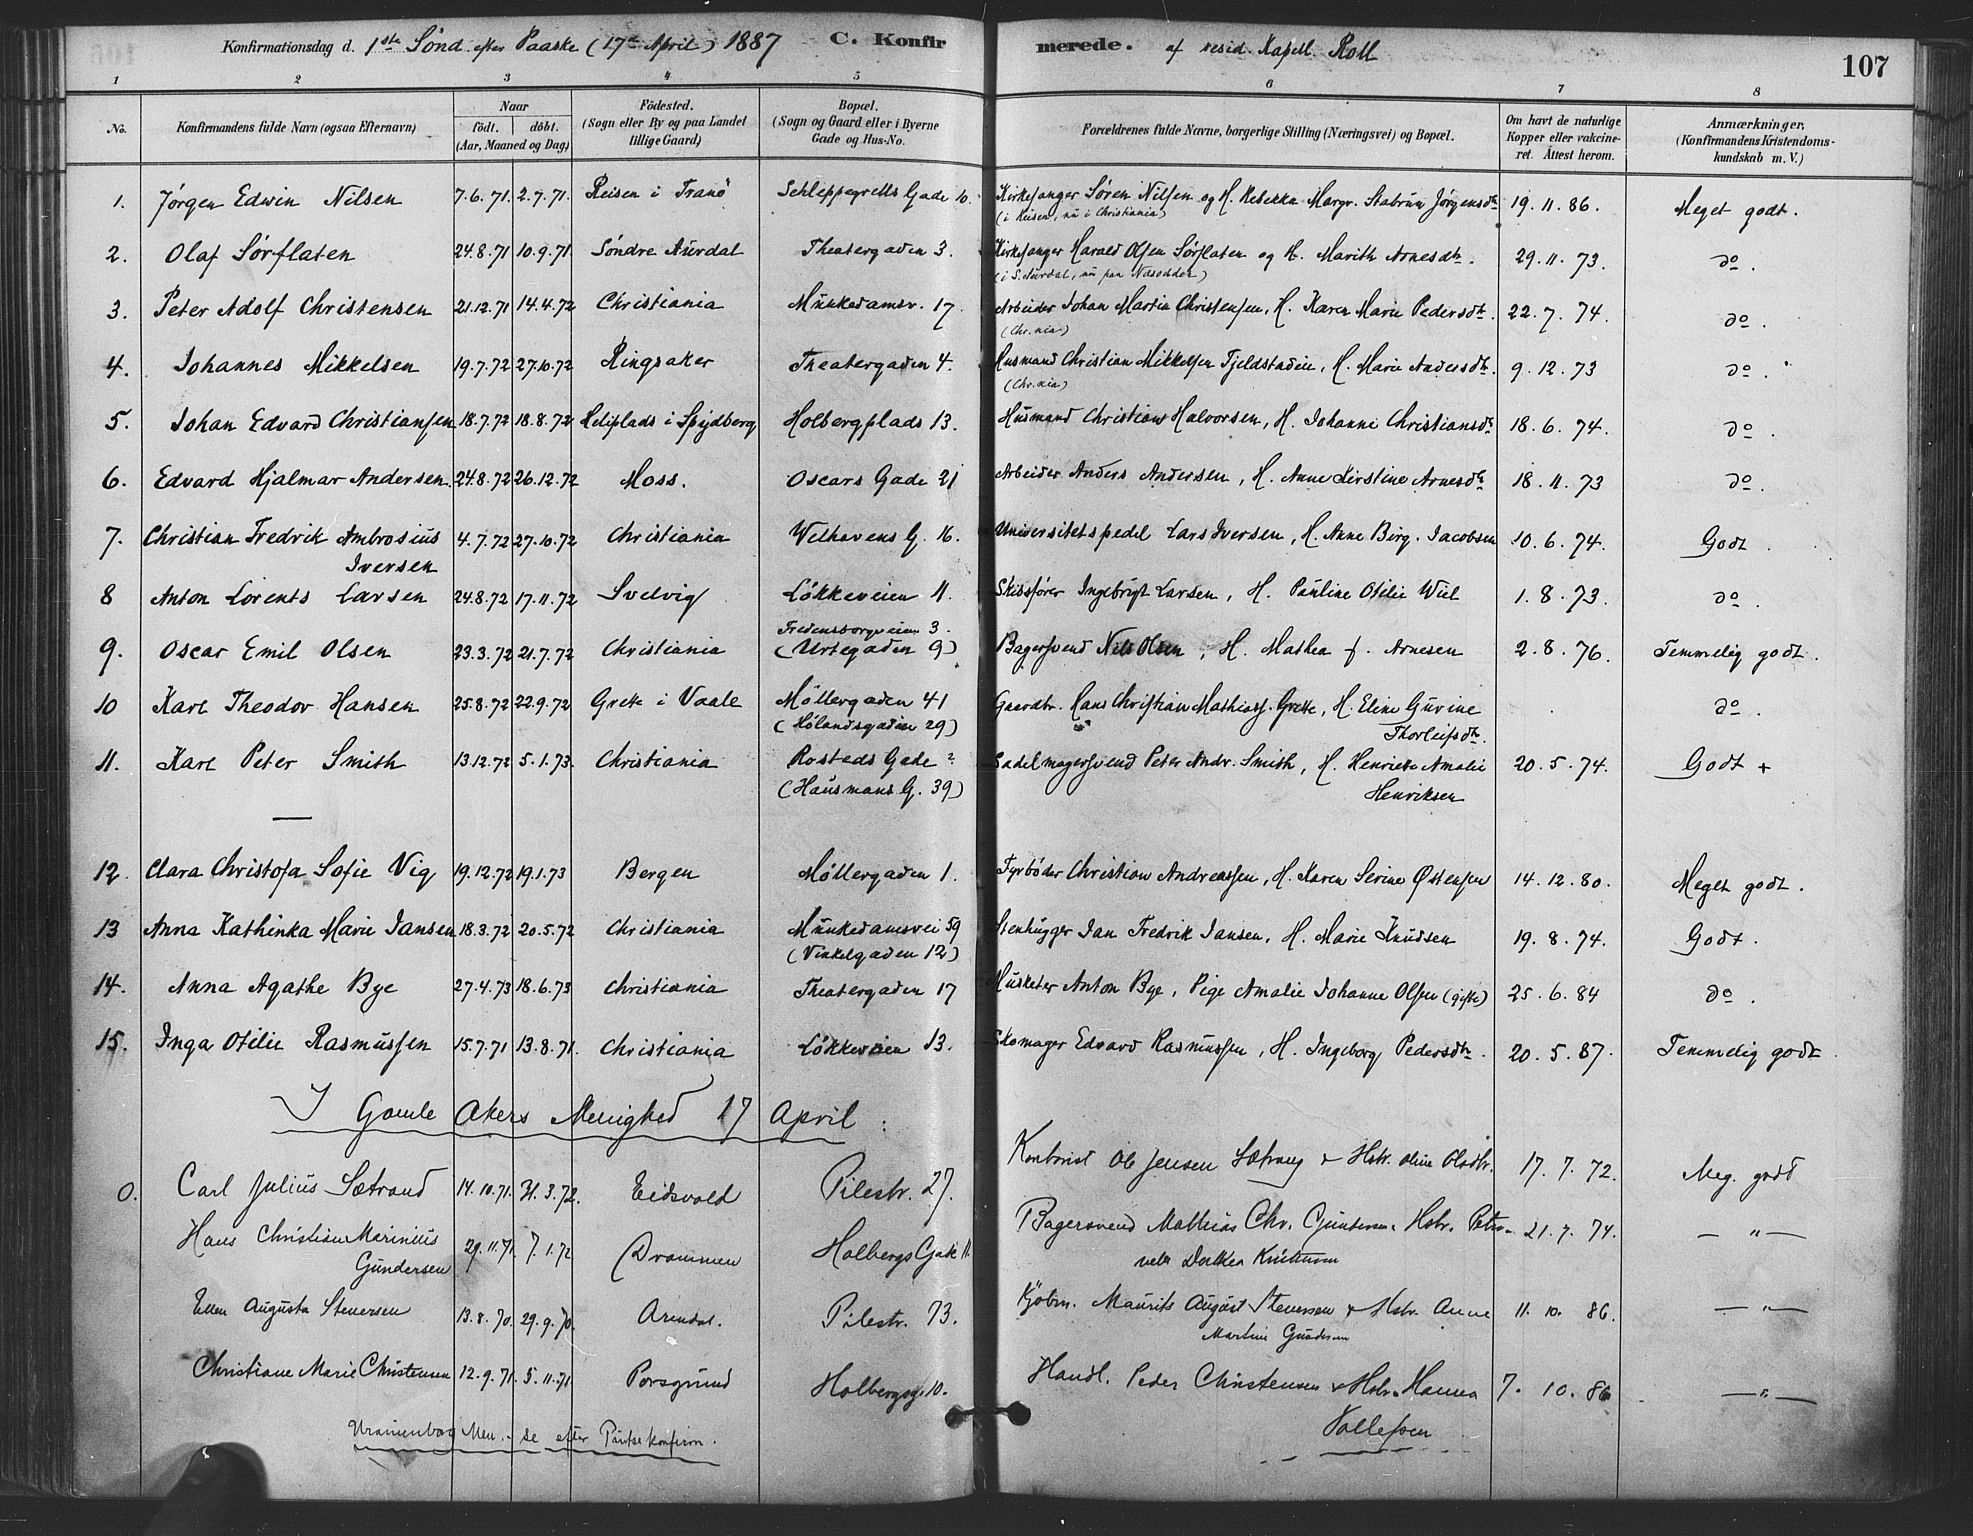 Konfirmationsdag d. 1ste Sönd. efter Paaske (17de April) 1887 C. Konfirmerede. af resid. Kapell. Roll 107
1 2 3 4 5 6 7 8
No. Konfirmandens fulde Navn (ogsaa Efternavn) Naar födt. döbt. (Aar, Maaned og Dag) Födested. (Sogn eller By og paa Landet tillige Gaard) Bopæl. (Sogn og Gaard eller i Byerne Gade og Hus-No. Forældrenes fulde Navne, borgerlige Stilling (Næringsvei) og Bopæl. Om havt de naturlige Kopper eller vakcineret. Attest herom. Anmærkninger, (Konfirmandens Kristendomskundskab m. V.)
1. Jørgen Edwin Nilsen 7.6.71. 2.7.71. Reisen i Tranö Schleppegrells Gade 10. Kirkesanger Sören Nilsen og H. Rebekka Margr. Stabrun Jörgensdtr 19.11.86. Meget godt.
(i Reisen, nu i Christiania)
2. Olaf Sørflaten 24.8.71 10.9.71. Søndre Aurdal Theatergaden 3. Kirkesanger Harald Olsen Sørflaten og H. Marith Arnesdtr. 29.11.73. do.
(i S. Aurdal, nu paa Næsodden)
3. Peter Adolf Christensen 21.12.71 14.4.72 Christiania Munkedamsv. 17. Arbeider Johan Martin Christensen, H. Karen Marie Pedersdtr. 22.7.74. do.
(Chr.nia)
4. Johannes Mikkelsen 19.7.72 27.10.72 Ringsaker Theatergaden 4. Husmand Christian Mikkelsen Fjeldstadeie, H. Marie Andersdtr. 9.12.73 do.
(Chr.nia)
5. Johan Edvard Christiansen 18.7.72 18.8.72 Heliplads i Spydberg Holbergplads 13. Husmand Christian Halvorsen, H. Johanne Christiansdtr 18.6.74. do.
6. Edvard Hjalmar Andersen. 24.8.72 26.12.72 Moss. Oscars Gade 21 Arbeider Anders Andersen, H. Anne Kirstine Arnesdtr 18.11.73 do.
7. Christian Fredrik Ambrosius 4.7.72 27.10.72 Christiania Welhavens G. 16. Universitetspedel Lars Iversen, H. Anne Birg. Jacobsen 10.6.74. Godt.
Iversen
8 Anton Lorents Larsen 24.8.72 17.11.72 Svelvig Løkkeveien 11. Skibsfører Ingebrigt Larsen, H. Pauline Otilie Wiel 1.8.73. do.
Fredensborgveien 3.
9. Oscar Emil Olsen 23.3.72 21.7.72 Christiania (Urtegaden 9) Bagersvend Nils Olsen, H. Mathea f. Arnesen 2.8.76. Temmelig godt.
10 Karl Theodor Hansen 25.8.72 22.9.72 Grette i Vaale Møllergaden 41 Gaardbr. Hans Christian Mathiass. Grette, H. Eline Gurine do.
(Hølandsgaden 29) Thorleifsdtr.
11. Karl Peter Smith 13.12.72 5.1.73. Christiania Rosteds Gade 2 Sadelmagersvend Peter Andr. Smith, H. Henriette Amalie 20.5.74. Godt +
(Hausmans G. 39) Henriksen
12. Clara Christofa Sofie Vig 19.12.72 19.1.73 Bergen Møllergaden 1. Fyrbøder Christian Andreassen, H. Karen Serine Østensen 14.12.80. Meget godt.
13 Anna Kathinka Marie Jansen 18.3.72 20.5.72 Christiania Munkedamsvei 59 Stenhugger Jan Fredrik Jansen, H. Marie Knudsen 19.8.74. Godt.
(Vinkelgaden 12)
14. Anna Agathe Bye 27.4.73 18.6.73 Christiania Theatergaden 17 Musketer Anton Bye, Pige Amalie Johanne Olsen (gifte) 25.6.84 do.
15. Inga Otilie Rasmussen 15.7.71 13.8.71. Christiania Løkkeveien 13. Skomager Edvard Rasmussen, H. Ingeborg Pedersdtr. 20.5.87. Temmelig godt.
I Gamle Akers Menighed 17 April:
0. Carl Julius Sætrand 14.10.71. 31.3.72. Eidsvold Pilestr. 27. Kontorist Ole Jensen Sætrang & Hstr. Oline Olsdtr. 17.7.72. Meg. godt
Hans Christian Marinius 29.11.71. 7.1.72 Drammen Holbergs Gade 11. Bagersvend Mathias Chr. Gundersen & Hstr. Petro- 21.7.74. — " —
Gundersen nelle Dorthea Knudsen
Ellen Augusta Stenersen 13.8.70. 29.9.70. Arendal. Pilestr. 73. Kjøbm. Maurits August Stenersen & Hstr. Anne 11.10.86. — " —
Martine Gundersen
Christiane Marie Christensen 12.9.71. 5.11.71 Porsgrund Holbergsg. 10. Handl. Peder Christensen & Hstr. Hanna 7.10.86 — " —
Tollefsen
Uranienborg Men. - se efter Pintse Konfirm.